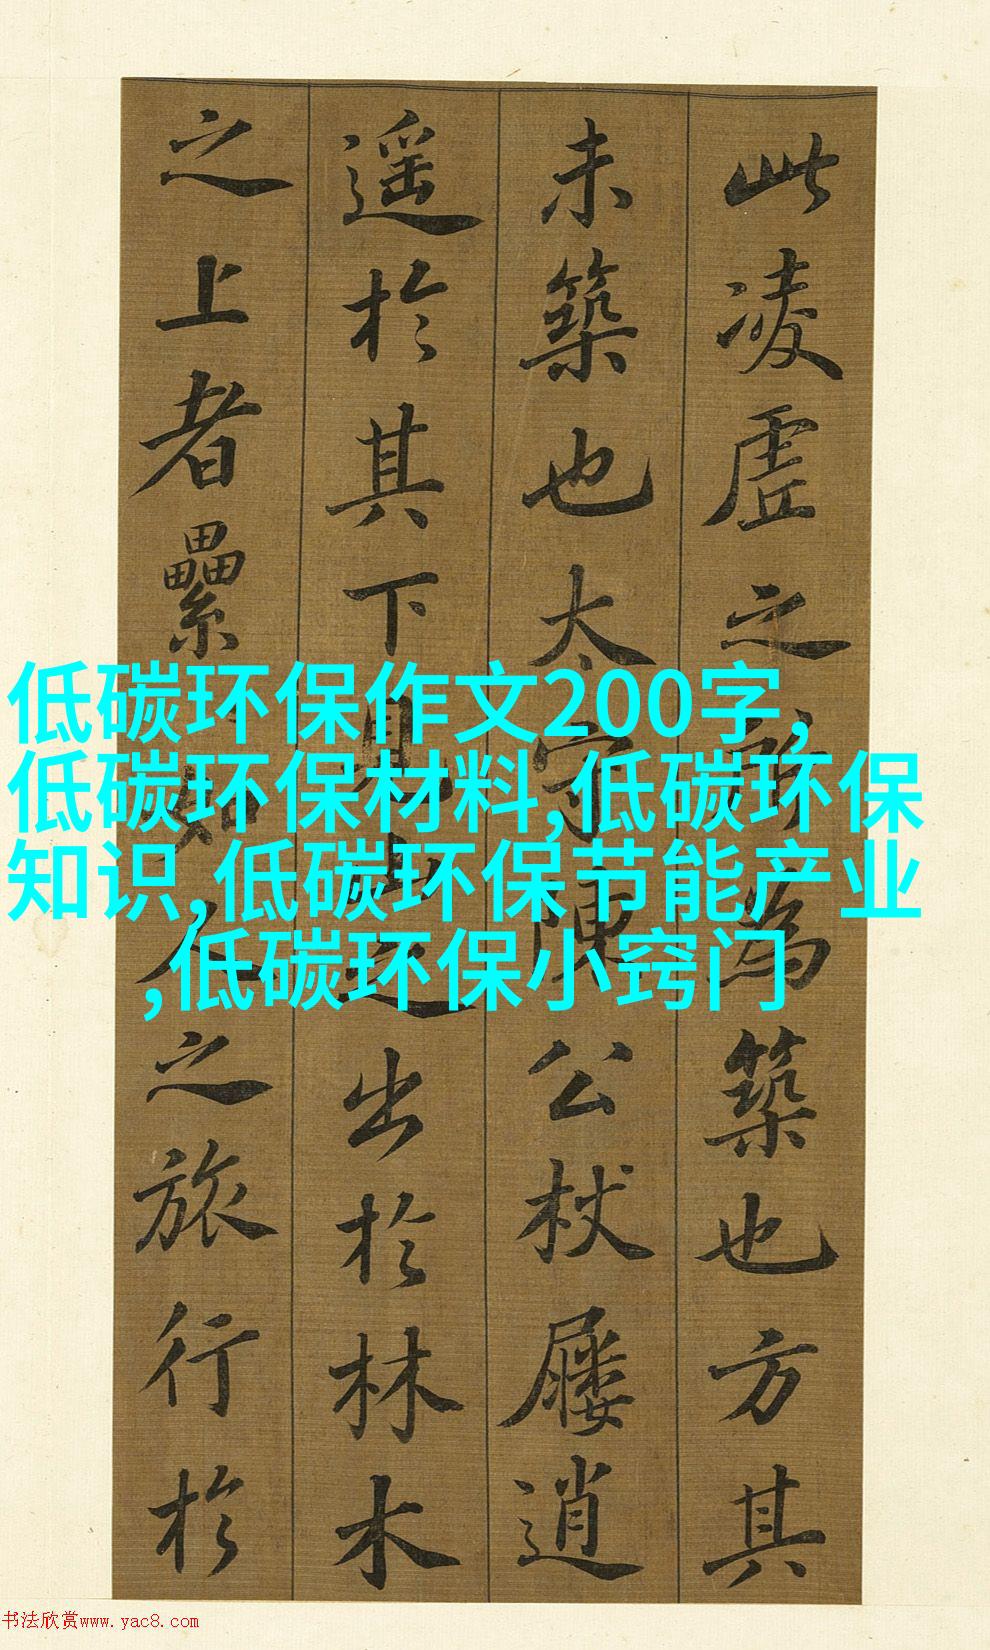 此凌虗之所為築也方其
未築也太守陳公杖屨逍
遥於其下見山之出於林木
之上者纍如人之旅行於
低碳环保作文200字,
低碳环保材料,低碳环保
知识,低碳环保节能产业
,低碳环保小窍门
书法欣赏www.yac8.com